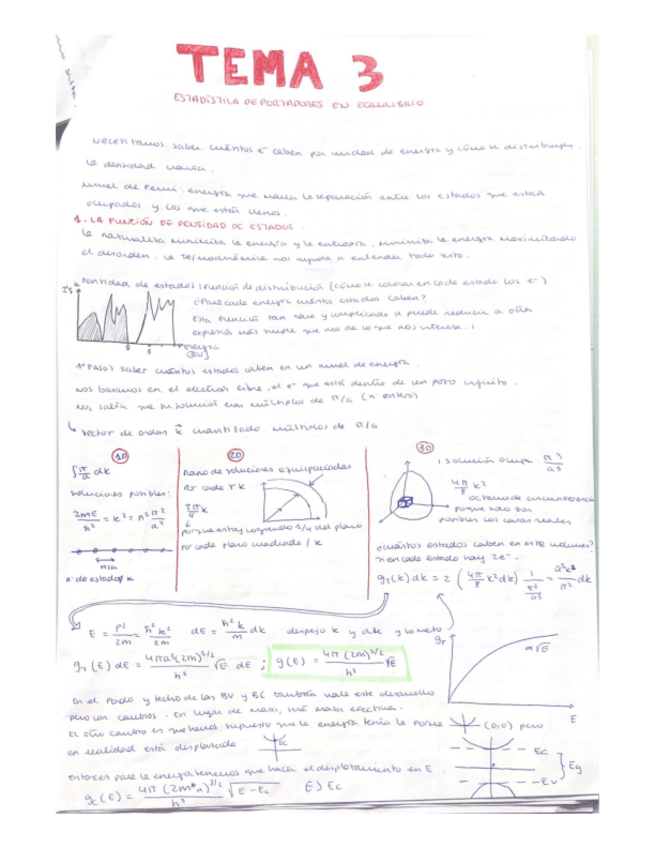 TEMA 3
ESTADÍSTICA DE PORTADORES EN EQUILIBRIO
Necesitamos saber cuántos e⁻ caben por unidad de energía y cómo se distribuyen.
La densidad varía.
Nivel de Fermi: energía que marca la separación entre los estados que están
ocupados y los que están llenos.
1. LA FUNCIÓN DE DENSIDAD DE ESTADOS.
La naturaleza minimiza la energía y la entropía. Minimiza la energía maximizando
el desorden. La Termodinámica nos ayuda a entender todo esto.
Densidad de estados función de distribución (cómo se colocan en cada estado los e⁻)
¿Para cada energía cuántos estados caben?
Esta función tan rara y complicada se puede reducir a otra
expresión más simple que nos da lo que nos interesa.
0
5
Energía
(eV)
1º PASO: saber cuántos estados caben en un nivel de energía.
Nos basamos en el electrón libre, el e⁻ que está dentro de un pozo infinito.
Nos salía que su solución eran múltiplos de π/a (n entero)
↳ Vector de ondas k⃗ cuantizado. Múltiplos de π/a
1D
dk
soluciones posibles:
2mE/ħ² = k² = n² π²/a²
π/a
nº de estados/k
2D
Plano de soluciones equiespaciadas
Por cada k
porque estoy cogiendo 1/4 del plano
por cada plano cuadrado / k
3D
1 solución ocupa π³/a³
4π/8 k²
octavo de circunferencia
porque solo son
posibles los caras reales
¿cuántos estados caben en este volumen?
en cada estado hay 2e⁻.
g_T(k) dk = 2 (4π/8 k² dk) 1/(π³/a³) = a³k²/π² dk
E = P²/2m = ħ²k²/2m dE = ħ²k/m dk despejo k y dk y lo meto
g_T(E) dE = 4πa³(2m)^3/2/h³ √E dE ; g(E) = 4π(2m)^3/2/h³ √E
g_T
α√E
E
En el fondo y techo de las BV y BC también vale este desarrollo
pero con cambios. En lugar de masa, será masa efectiva.
El otro cambio es que hemos supuesto que la energía tenía la forma (0,0) pero
en realidad está desplazada
Ec
Ec
Eg
Ev
entonces para la energía tenemos que hacer el desplazamiento en E.
g_c(E) = 4π(2m*n)^3/2/h³ √E-Ec E > Ec